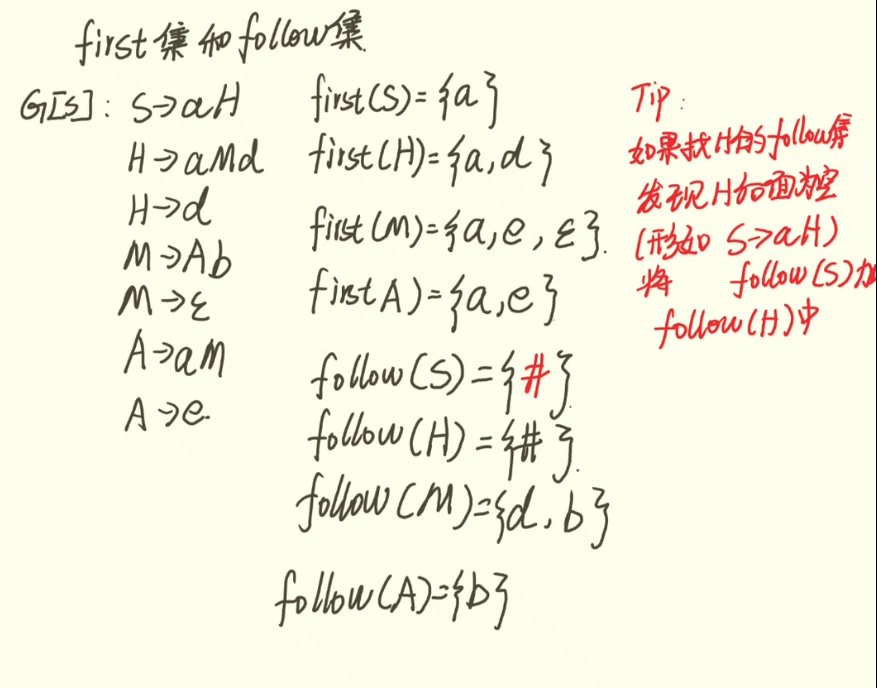 first集和follow集
G[S]: S→aH
H→aMd
H→d
M→Ab
M→ε
A→aM
A→e.
first(S)={a}
first(H)={a,d}
first(M)={a,e,ε}.
firstA)={a,e}
follow(S)={#}.
follow(H)={#}.
follow(M)={d,b}
follow(A)={b}
Tip:
如果找H的follow集
发现H后面为空
(形如 S→aH)
将 follow(S)加
follow(H)中